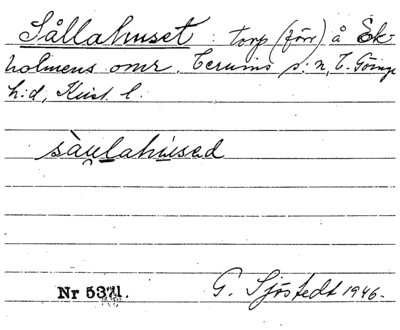 Sållahuset : torp (förr) å Ek-
holmens omr. Verums s:n, V. Göinge
h:d, Krist. l.
sàu̯lahúsəd
Nr 5371.
G. Sjöstedt 1946.